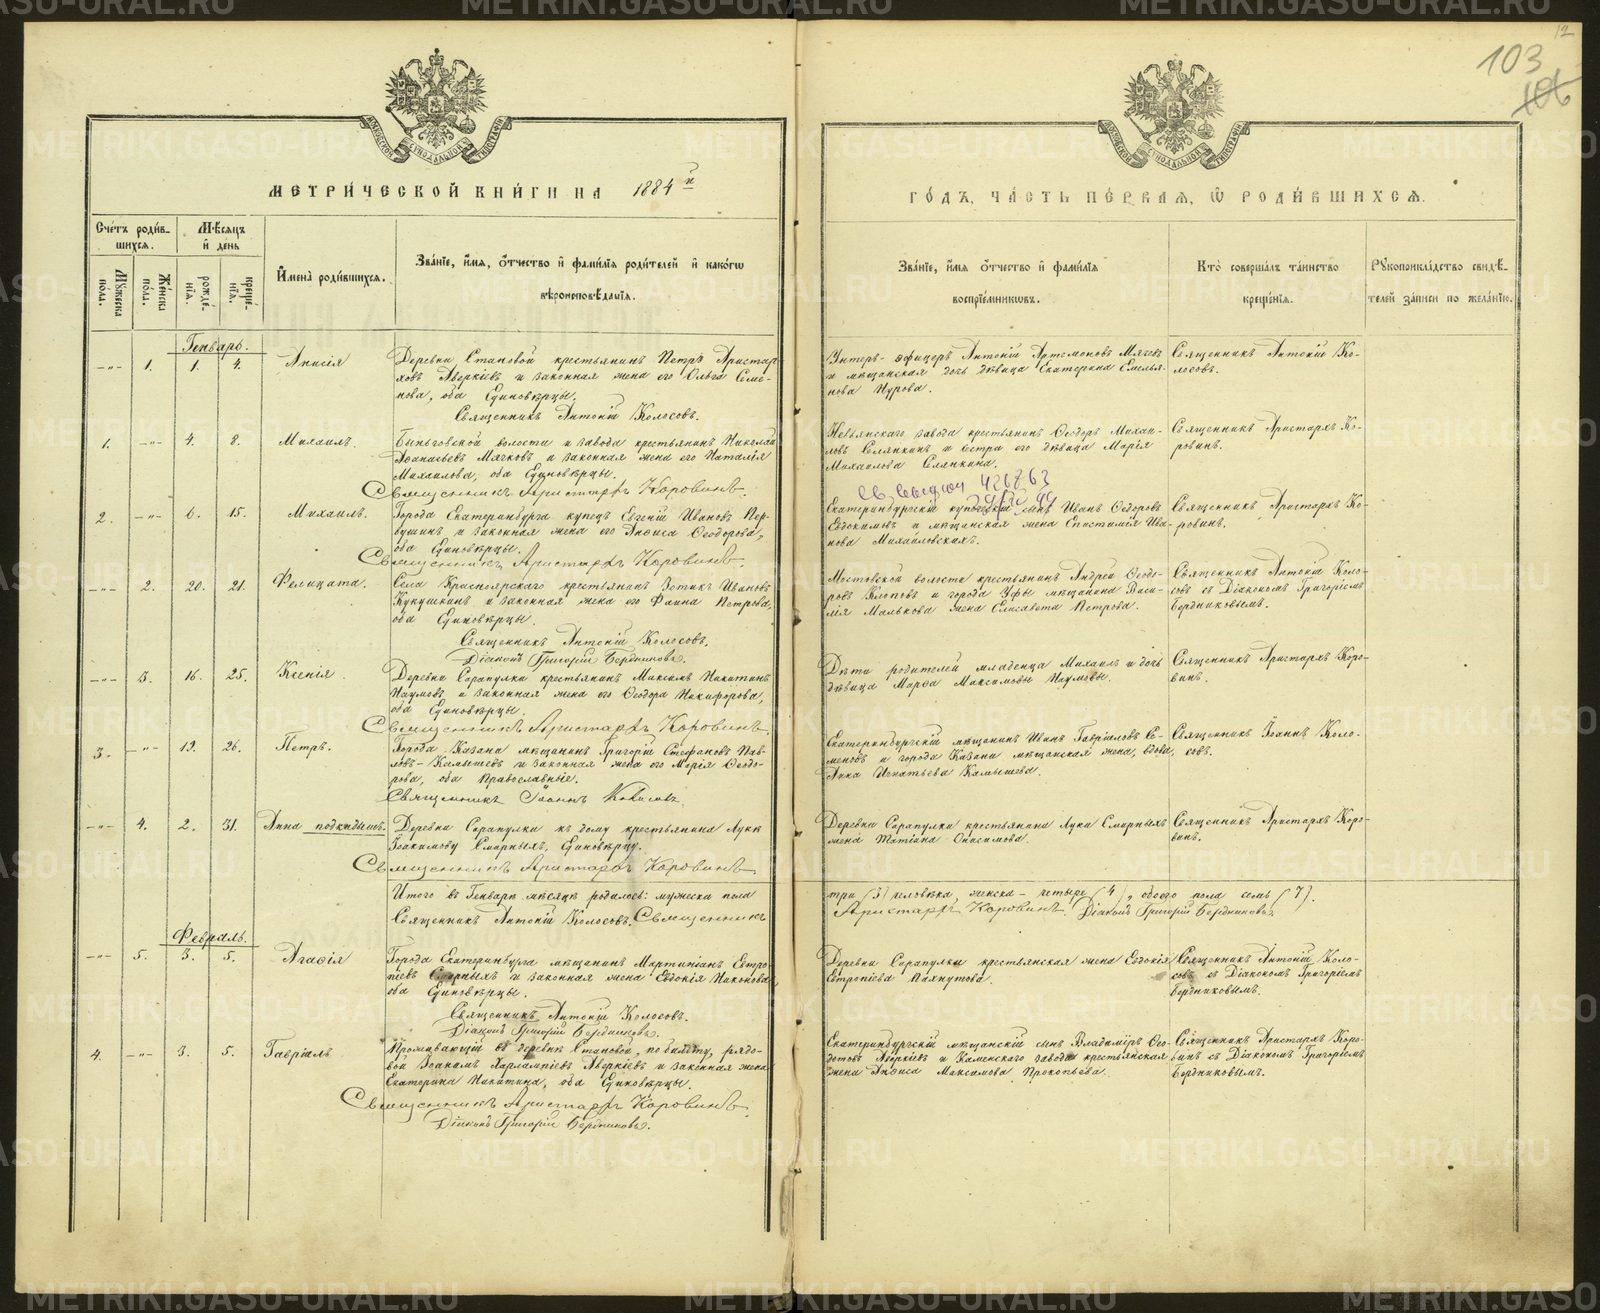 METRIKI.GASO-URAL.RU
12
103
МОСКОВСКОЙ СѴНОДАЛЬНОЙ ТИПОГРАФІИ
МОСКОВСКОЙ СѴНОДАЛЬНОЙ ТИПОГРАФІИ
МЕТРИЧЕСКОЙ КНИГИ НА 1884й
ГОДЪ, ЧАСТЬ ПЕРВАЯ, Ѡ РОДИВШИХСЯ.
Счетъ родив-
шихся.
Мѣсяцъ
и день
Мужеска пола.
Женска пола.
рожде-
нія.
креще-
нія.
Имена родившихся.
Званіе, имя, отчество и фамилія родителей и какогѡ
вѣроисповѣданія.
Званіе, имя отчество и фамилія
воспріемникѡвъ.
Кто совершалъ таинство
крещенія.
Рукоприкладство свидѣ-
телей записи по желанію.
Генварь.
-"- 1. 1. 4. Анисія
Деревни Становой крестьянинъ Петръ Аристар-
ховъ Аверкіевъ и законная жена его Ольга Семе-
нова, оба Единовѣрцы.
Священникъ Антоній Колосовъ.
Унтеръ-офицеръ Антоній Артемоновъ Мягев
и мѣщанская дочь дѣвица Екатерина Емелья-
нова Шурова.
Священникъ Антоній Ко-
лосовъ.
1. -"- 4. 8. Михаилъ.
Быньговской волости и завода крестьянинъ Николай
Аѳанасьевъ Мягковъ и законная жена его Наталія
Михаилова, оба Единовѣрцы.
Священникъ Аристархъ Коровинъ.
Невьянскаго завода крестьянинъ Ѳеодоръ Михаи-
ловъ Селянкинъ и сестра его дѣвица Марія
Михаилова Селянкина.
Священникъ Аристархъ Ко-
ровинъ.
2. -"- 6. 15. Михаилъ.
Города Екатеринбурга купецъ Евгеній Ивановъ Пер-
вушинъ и законная жена его Анфиса Ѳеодорова,
оба Единовѣрцы.
Священникъ Аристархъ Коровинъ.
426763
Екатеринбургскій купеческій сынъ Иванъ Ѳедоровъ
Евдокимовъ и мѣщанская жена Епистимія Ива-
нова Михайловскихъ.
Священникъ Аристархъ Ко-
ровинъ.
-"- 2. 20. 21. Фелицата.
Села Красноярскаго крестьянинъ Зотикъ Ивановъ
Кукушкинъ и законная жена его Фаина Петрова,
оба Единовѣрцы.
Священникъ Антоній Колосовъ.
Діаконъ Григорій Бердниковъ.
Мостовской волости крестьянинъ Андрей Ѳеодо-
ровъ Клоповъ и города Уфы мѣщанина Васи-
лія Малькова жена Елисавета Петрова.
Священникъ Антоній Коло-
совъ съ Діакономъ Григоріемъ
Бердниковымъ.
-"- 3. 16. 25. Ксенія.
Деревни Сарапулки крестьянинъ Максимъ Никитинъ
Наумовъ и законная жена его Ѳеодора Никифорова,
оба Единовѣрцы.
Священникъ Аристархъ Коровинъ.
Дѣти родителей младенца Михаилъ и дочь
дѣвица Марѳа Максимовы Наумовы.
Священникъ Аристархъ Коро-
винъ.
3. -"- 19. 26. Петръ.
Города Казани мѣщанинъ Григорій Стефановъ Пав-
ловъ-Камышевъ и законная жена его Марія Ѳеодо-
рова, оба Православные.
Священникъ Іоаннъ
Екатеринбургскій мѣщанинъ Иванъ Гавріиловъ Се-
меновъ и города Казани мѣщанская жена, вдова,
Анна Игнатьева Камышева.
Священникъ Іоаннъ Коло-
совъ.
-"- 4. 2. 31. Анна подкидышъ.
Деревни Сарапулки къ дому крестьянина Луки
Іоакимову Смирныхъ, Единовѣрцу.
Священникъ Аристархъ Коровинъ
Деревни Сарапулки крестьянина Луки Смирныхъ
жена Татіана Онисимова.
Священникъ Аристархъ Коро-
винъ.
Итого въ Генварѣ мѣсяцѣ родилось: мужеска пола
три (3) человѣка, женска - четыре (4), обоего пола семь (7).
Священникъ Антоній Колосовъ. Священникъ
Аристархъ Коровинъ. Діаконъ Григорій Бердниковъ.
Февраль.
-"- 5. 3. 5. Агаѳія
Города Екатеринбурга мѣщанинъ Мартиніанъ Евтро-
піевъ Смирныхъ и законная жена Евдокія Никонова,
оба Единовѣрцы.
Священникъ Антоній Колосовъ.
Діаконъ Григорій Бердниковъ.
Деревни Сарапулки крестьянская жена Евдокія
Евтропіева Пахнутова.
Священникъ Антоній Коло-
совъ съ Діакономъ Григоріемъ
Бердниковымъ.
4. -"- 3. 5. Гавріилъ
Проживающій въ деревнѣ Становой, по билету, рядо-
вой Іоакимъ Харлампіевъ Аверкіевъ и законная жена
Екатерина Никитина, оба Единовѣрцы.
Священникъ Аристархъ Коровинъ.
Діаконъ Григорій Бердниковъ.
Екатеринбургскій мѣщанскій сынъ Владиміръ Ѳео-
дотовъ Аверкіевъ и Каменскаго завода крестьянская
жена Анфиса Максимова Прокопьева.
Священникъ Аристархъ Коро-
винъ съ Діакономъ Григоріемъ
Бердниковымъ.